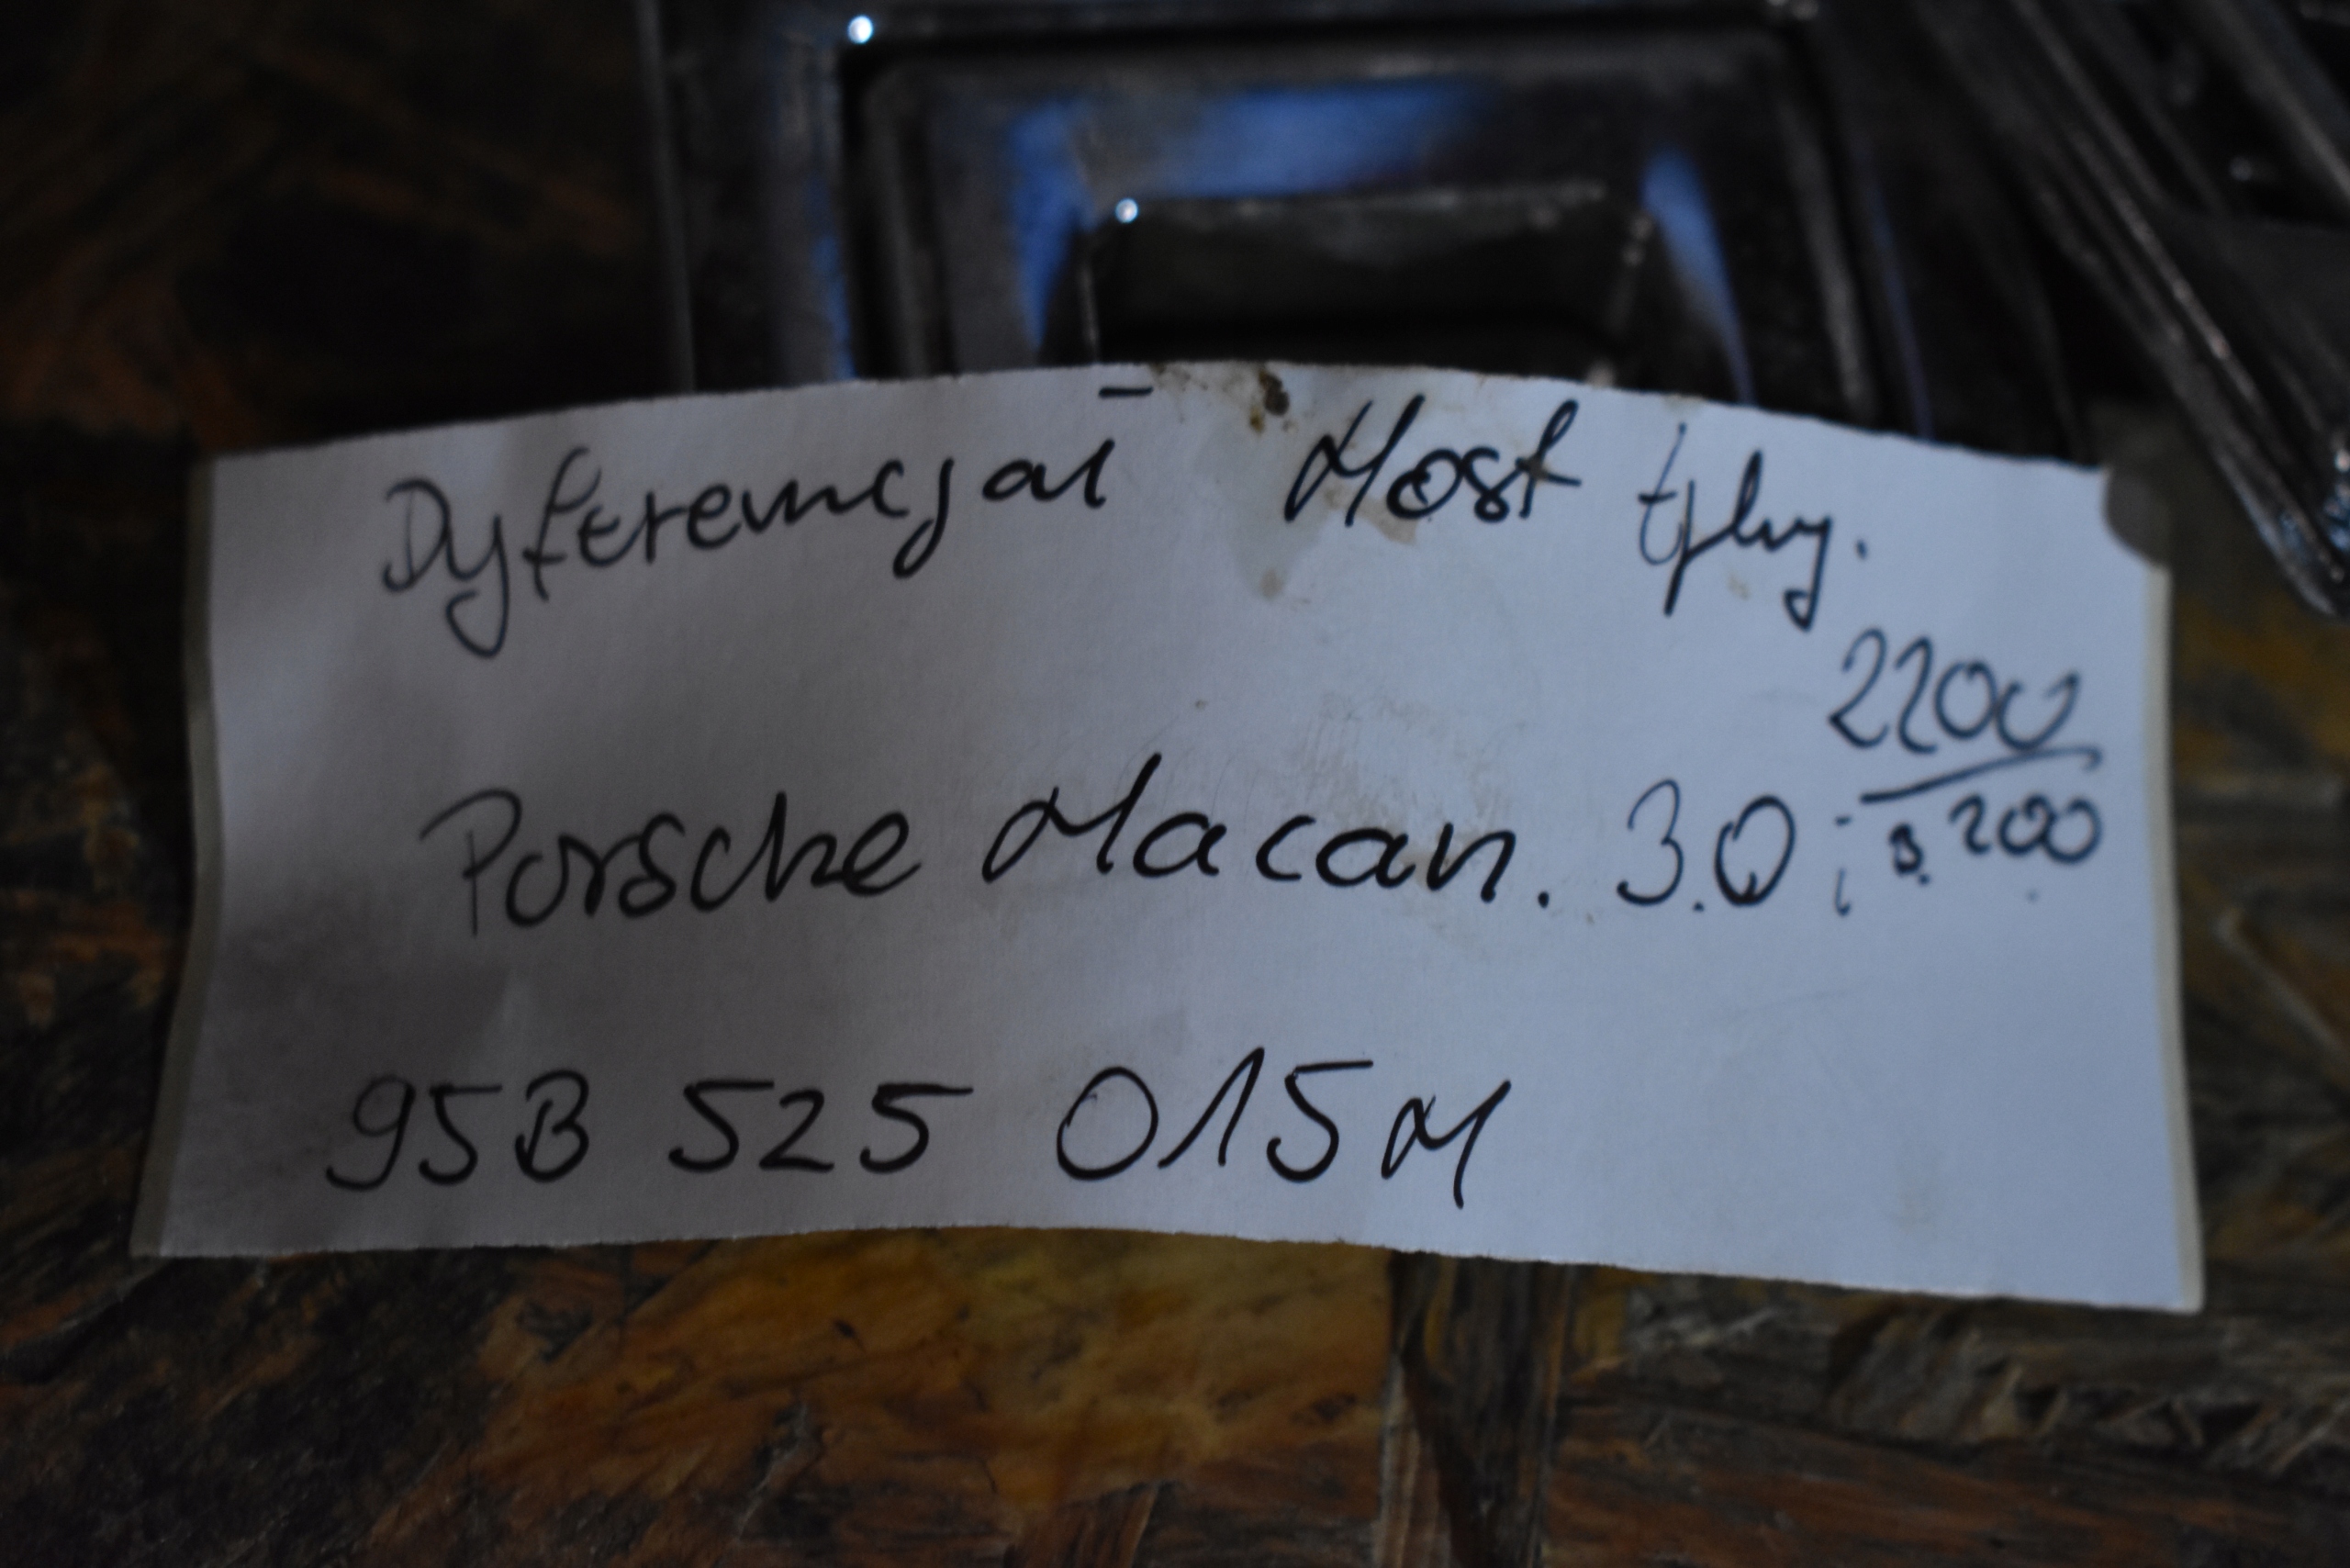 Dyferencjał Most tylny.
2200
Porsche Macan. 3.0
200
95B 525 015M